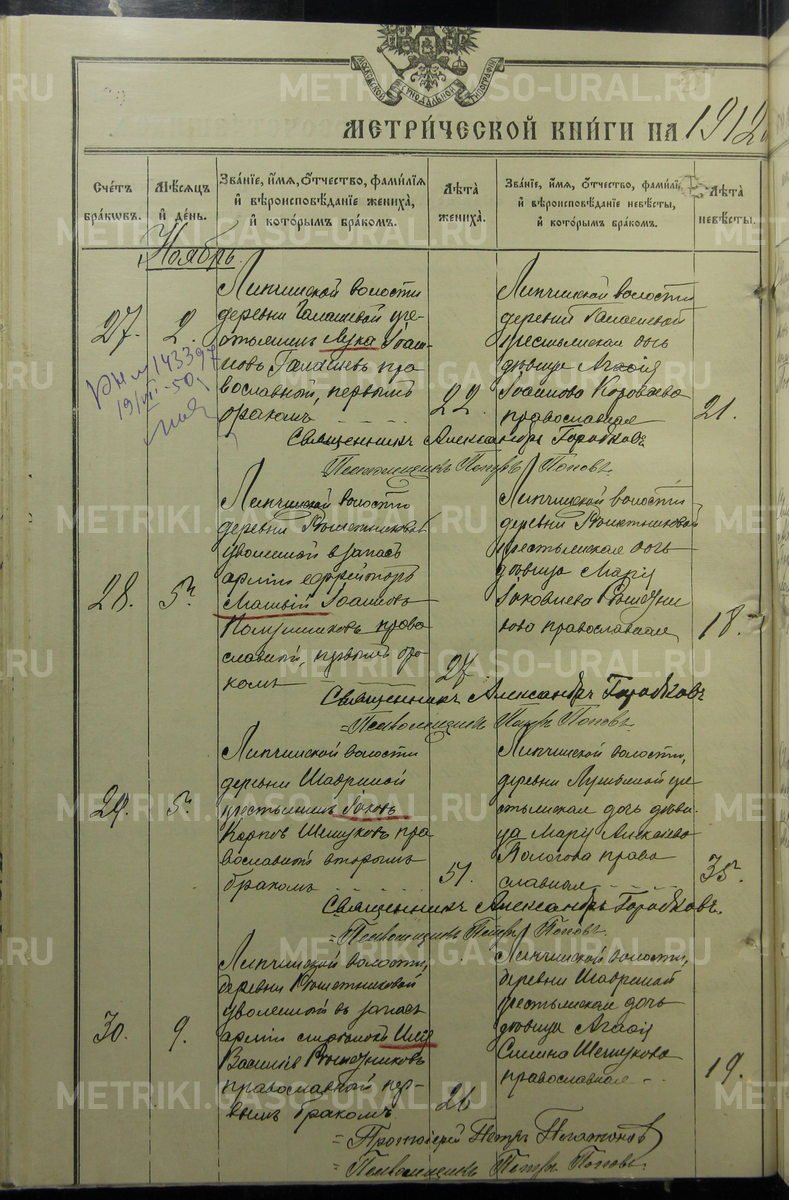 МОСКОВСКОЙ СѴНОДАЛЬНОЙ ТИПОГРАФІИ
МЕТРИ́ЧЕСКОЙ КНИ́ГИ НА 1912
Счетъ бра́кωвъ.
Мѣ́сяцъ и҆ де́нь.
Зва́нїе, и҆́мя, ѻ҆́тчество, фами́лїя и҆ вѣроисповѣ́данїе жениха̀, и҆ кото́рымъ бра́комъ.
Лѣ́та жениха̀.
Зва́нїе, и҆́мя, ѻ҆́тчество, фами́лїя и҆ вѣроисповѣ́данїе невѣ́сты, и҆ кото́рымъ бра́комъ.
Лѣ́та невѣ́сты.
Ноябрь.
27.
2.
Липчинской волости
деревни Галашевой кре-
стьянинъ Лука Іоан-
новъ Галашевъ пра
вославный, первымъ
бракомъ
22.
Липчинской волости
деревни
крестьянская дочь
дѣвица Агафія
Іоаннова
православная
21.
19/VII-50
Священникъ Александръ Горбковъ
Псаломщикъ Петръ Поповъ.
28.
5й
Липчинской волости
деревни Решетниковой
уволенный въ запасъ
арміи ефрейторъ
Матвѣй Іоанновъ
православный, первымъ бра-
комъ
27.
Липчинской волости
деревни Решетниковой
крестьянская дочь
дѣвица Марія
Іаковлева Решетни
кова православная
18.
Священникъ Александръ Горбковъ
Псаломщикъ Петръ Поповъ
29.
5й
Липчинской волости
деревни Шавриной
крестьянинъ Іаковъ
Карповъ Шешуковъ пра
вославный вторымъ
бракомъ
51.
Липчинской волости,
деревни кре
стьянская дочь дѣви-
ца Марія Алексѣева
Вологова право
славная
35.
Священникъ Александръ Горбковъ.
Псаломщикъ Петръ Поповъ.
30.
9.
Липчинской волости,
деревни Решетниковой
уволенный въ запасъ
арміи стрѣлокъ Илія
Василіевъ Решетниковъ
православный пер-
вымъ бракомъ
26
Липчинской волости,
деревни Шавриной
крестьянская дочь
дѣвица Агафія
Шешукова
православная
19.
Протоіерей Петръ
Псаломщикъ Петръ Поповъ.
METRIKI.GASO-URAL.RU